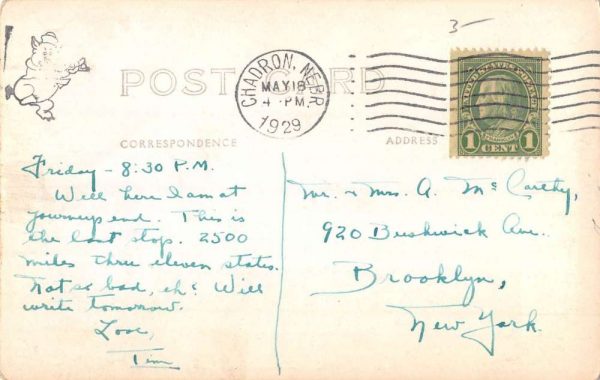 3-
POST CARD
CHADRON, NEBR.
MAY 18
4 - PM
1929
UNITED STATES POSTAGE
FRANKLIN
1 CENT 1
CORRESPONDENCE
ADDRESS
Friday - 8:30 P.M.
Well here I am at
journeys end. This is
the last stop. 2500
miles thru eleven states.
Not so bad, eh? Will
write tomorrow.
Love,
Tim
Mr. + Mrs. A. McCarthy,
920 Bushwick Ave.
Brooklyn,
New York.